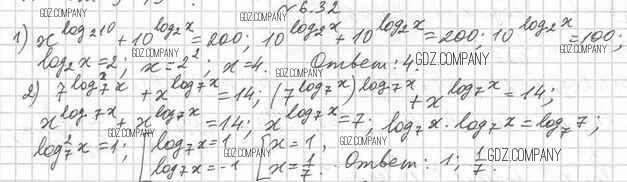 №6.32
1) x^log₂10 + 10^log₂x = 200; 10^log₂x + 10^log₂x = 200; 10^log₂x = 100;
log₂x = 2; x = 2²; x = 4. Ответ: 4.
2) 7^log₇²x + x^log₇x = 14; (7^log₇x)^log₇x + x^log₇x = 14;
x^log₇x + x^log₇x = 14; x^log₇x = 7; log₇x · log₇x = log₇7;
log₇²x = 1; [log₇x = 1 [x = 1,
log₇x = -1 x = 1/7. Ответ: 1; 1/7.
GDZ.COMPANY
GDZ.COMPANY
GDZ.COMPANY
GDZ.COMPANY
GDZ.COMPANY
GDZ.COMPANY
GDZ.COMPANY
GDZ.COMPANY
GDZ.COMPANY
GDZ.COMPANY
GDZ.COMPANY